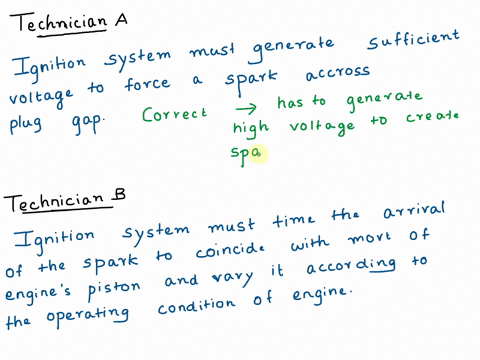 Technician A
Ignition system must generate sufficient
voltage to force a spark accross
plug gap. Correct → has to generate
high voltage to create
spa
Technician B
Ignition system must time the arrival
of the spark to coincide with mort of
engine's piston and vary it according to
the operating condition of engine.